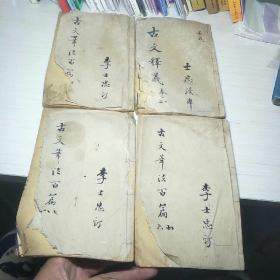 古文笔法百篇
李士忠订
古文釋義 卷二
士忠
古文筆法百篇
李士忠訂
古文筆法百篇
李士忠訂